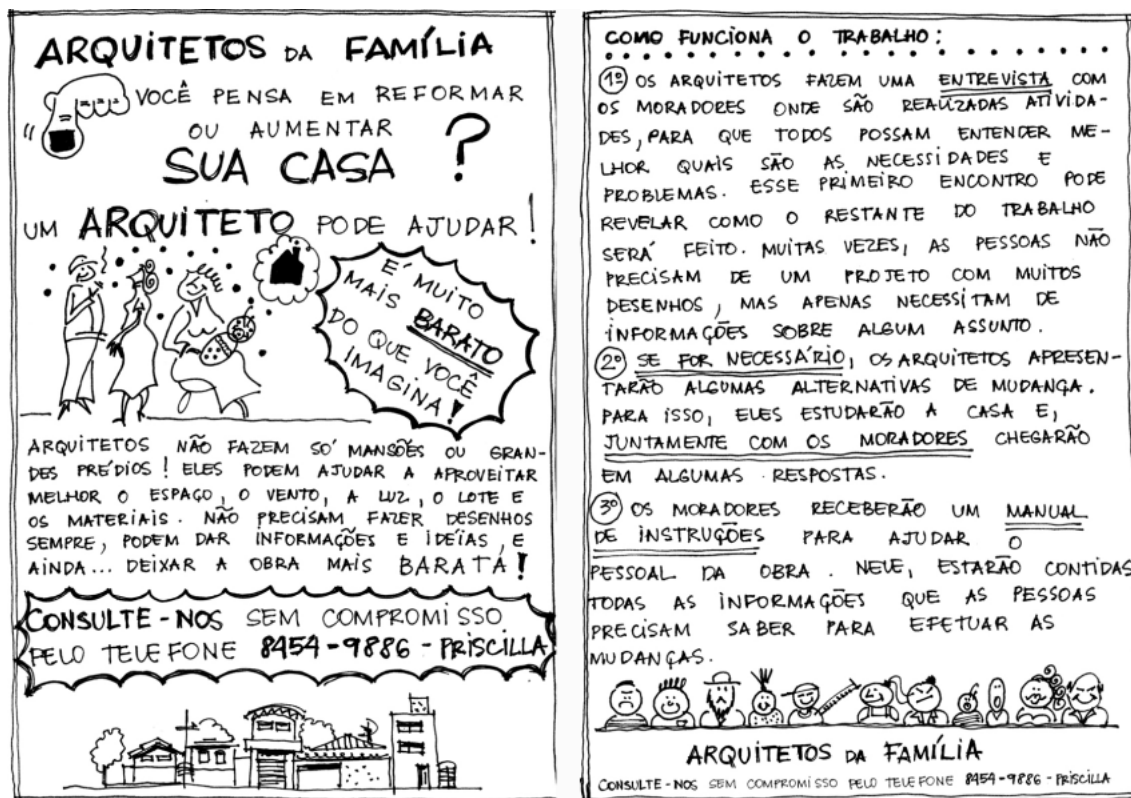 ARQUITETOS DA FAMÍLIA
VOCÊ PENSA EM REFORMAR
OU AUMENTAR
SUA CASA ?
UM ARQUITETO PODE AJUDAR!
É MUITO
MAIS BARATO
DO QUE VOCÊ
IMAGINA!
ARQUITETOS NÃO FAZEM SÓ MANSÕES OU GRAN-
DES PRÉDIOS! ELES PODEM AJUDAR A APROVEITAR
MELHOR O ESPAÇO, O VENTO, A LUZ, O LOTE E
OS MATERIAIS. NÃO PRECISAM FAZER DESENHOS
SEMPRE, PODEM DAR INFORMAÇÕES E IDÉIAS, E
AINDA... DEIXAR A OBRA MAIS BARATA!
CONSULTE-NOS SEM COMPROMISSO
PELO TELEFONE 8454-9886 - PRISCILLA
COMO FUNCIONA O TRABALHO:
1º OS ARQUITETOS FAZEM UMA ENTREVISTA COM
OS MORADORES ONDE SÃO REALIZADAS ATIVIDA-
DES, PARA QUE TODOS POSSAM ENTENDER ME-
LHOR QUAIS SÃO AS NECESSIDADES E
PROBLEMAS. ESSE PRIMEIRO ENCONTRO PODE
REVELAR COMO O RESTANTE DO TRABALHO
SERÁ FEITO. MUITAS VEZES, AS PESSOAS NÃO
PRECISAM DE UM PROJETO COM MUITOS
DESENHOS, MAS APENAS NECESSITAM DE
INFORMAÇÕES SOBRE ALGUM ASSUNTO.
2º SE FOR NECESSÁRIO, OS ARQUITETOS APRESEN-
TARÃO ALGUMAS ALTERNATIVAS DE MUDANÇA.
PARA ISSO, ELES ESTUDARÃO A CASA E,
JUNTAMENTE COM OS MORADORES CHEGARÃO
EM ALGUMAS RESPOSTAS.
3º OS MORADORES RECEBERÃO UM MANUAL
DE INSTRUÇÕES PARA AJUDAR O
PESSOAL DA OBRA. NELE, ESTARÃO CONTIDAS
TODAS AS INFORMAÇÕES QUE AS PESSOAS
PRECISAM SABER PARA EFETUAR AS
MUDANÇAS.
ARQUITETOS DA FAMÍLIA
CONSULTE-NOS SEM COMPROMISSO PELO TELEFONE 8454-9886 - PRISCILLA